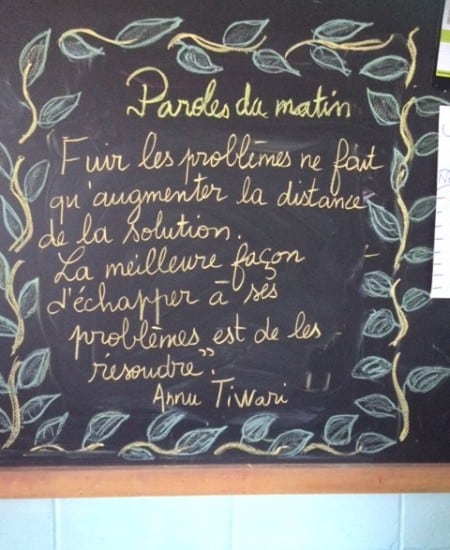 Paroles du matin
Fuir les problèmes ne fait
qu'augmenter la distance
de la solution.
La meilleure façon
d'échapper à ses
problèmes est de les
résoudre".
Annu Tiwari